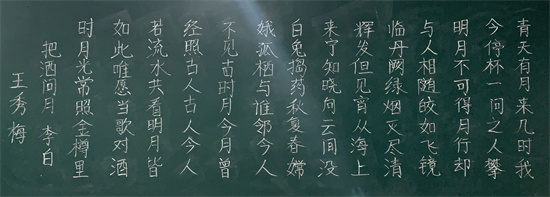 青天有月来几时我
今停杯一问之人攀
明月不可得月行却
与人相随皎如飞镜
临丹阙绿烟灭尽清
辉发但见宵从海上
来宁知晓向云间没
白兔捣药秋复春嫦
娥孤栖与谁邻今人
不见古时月今月曾
经照古人古人今人
若流水共看明月皆
如此唯愿当歌对酒
时月光常照金樽里
把酒问月 李白
王秀梅